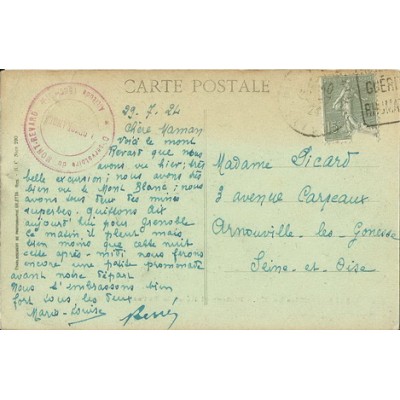 CARTE POSTALE
29-7-24
Chère Maman
Voici le mont
Revart que nous
avons vu hier; très
belle excursion; nous avons très
bien vu le Mont Blanc; nous
avons tous deux des mines
superbes. quittons Aix
aujourd'hui pour Grenoble
ce matin, il pleut mais
bien moins que cette nuit
cette après-midi nous ferons
encore une petite promenade
avant notre départ
Nous t'embrassons bien
fort tous les deux
Marie-Louise
Madame Picard
3 avenue Carpeaux
Arnouville-les-Gonesse
Seine-et-Oise
MONT-REVARD
15
GUÉRI